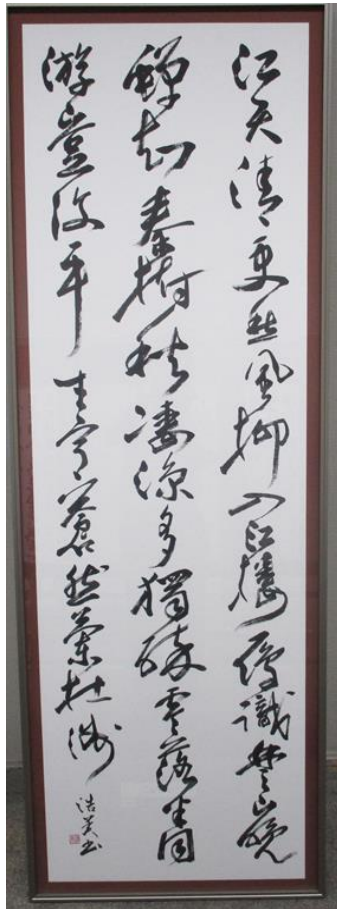 江天清更愁風柳入江樓雁識楚山晚
蟬知秦樹秋凄涼多獨醉零落半同
游豈復平生意蒼然蘭杜洲
浩美書